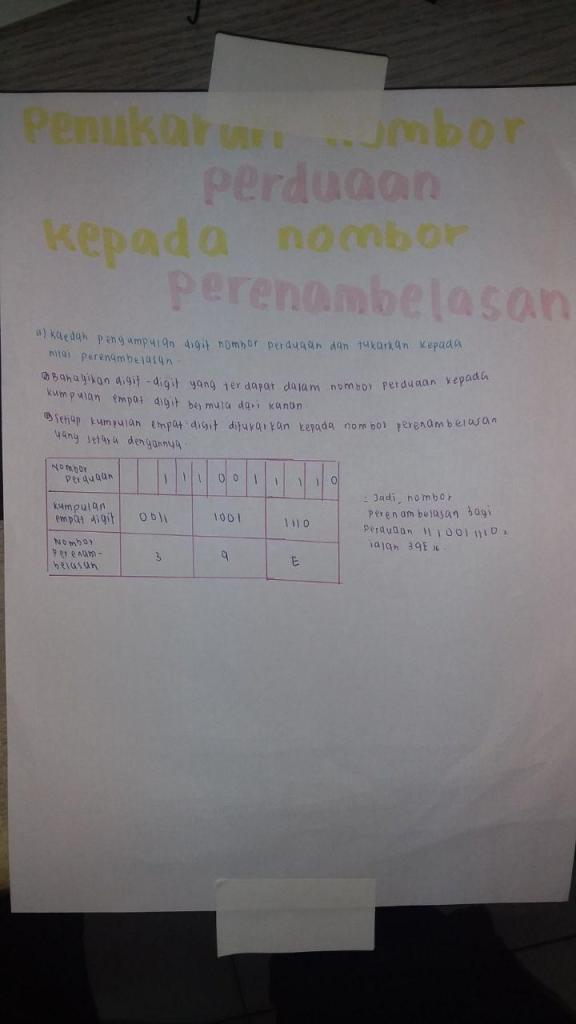 Penukaran nombor
perduaan
kepada nombor
perenambelasan
a) Kaedah pengumpulan digit nombor perduaan dan tukarkan kepada
nilai perenambelasan.
Bahagikan digit-digit yang terdapat dalam nombor perduaan kepada
kumpulan empat digit bermula dari kanan
Setiap kumpulan empat digit ditukarkan kepada nombor perenambelasan
yang setara dengannya.
Nombor
perduaan 1 1 1 0 0 1 1 1 1 0
kumpulan
empat digit 0011 1001 1110
Nombor
perenam-
belasan 3 9 E
: Jadi, nombor
perenambelasan bagi
perduaan 1110011110₂
ialah 39E₁₆.